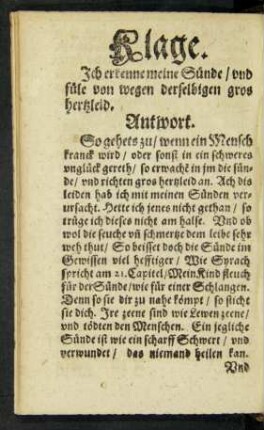 Klage.
Ich erkenne meine Sünde / vnd
füle von wegen derselbigen gros
hertzleid.
Antwort.
So gehets zu / wenn ein Mensch
kranck wird / oder sonst in ein schweres
vnglück gereth / so erwachẽ in jm die sün-
de / vnd richten gros hertzleid an. Ach dis
leiden hab ich mit meinen Sünden ver-
ursacht. Hette ich jenes nicht gethan / so
trüge ich dieses nicht am halse. Vnd ob
wol die seuche vñ schmertze dem leibe sehr
weh thut / So beisset doch die Sünde im
Gewissen viel hefftiger / Wie Syrach
spricht am 21. Capitel / Mein Kind fleuch
für der Sünde / wie für einer Schlangen.
Denn so sie dir zu nahe kömpt / so sticht
sie dich. Ire zeene sind wie Lewen zeene /
vnd tödten den Menschen. Ein jegliche
Sünde ist wie ein scharff Schwert / vnd
verwundet / das niemand heilen kan.
Vnd